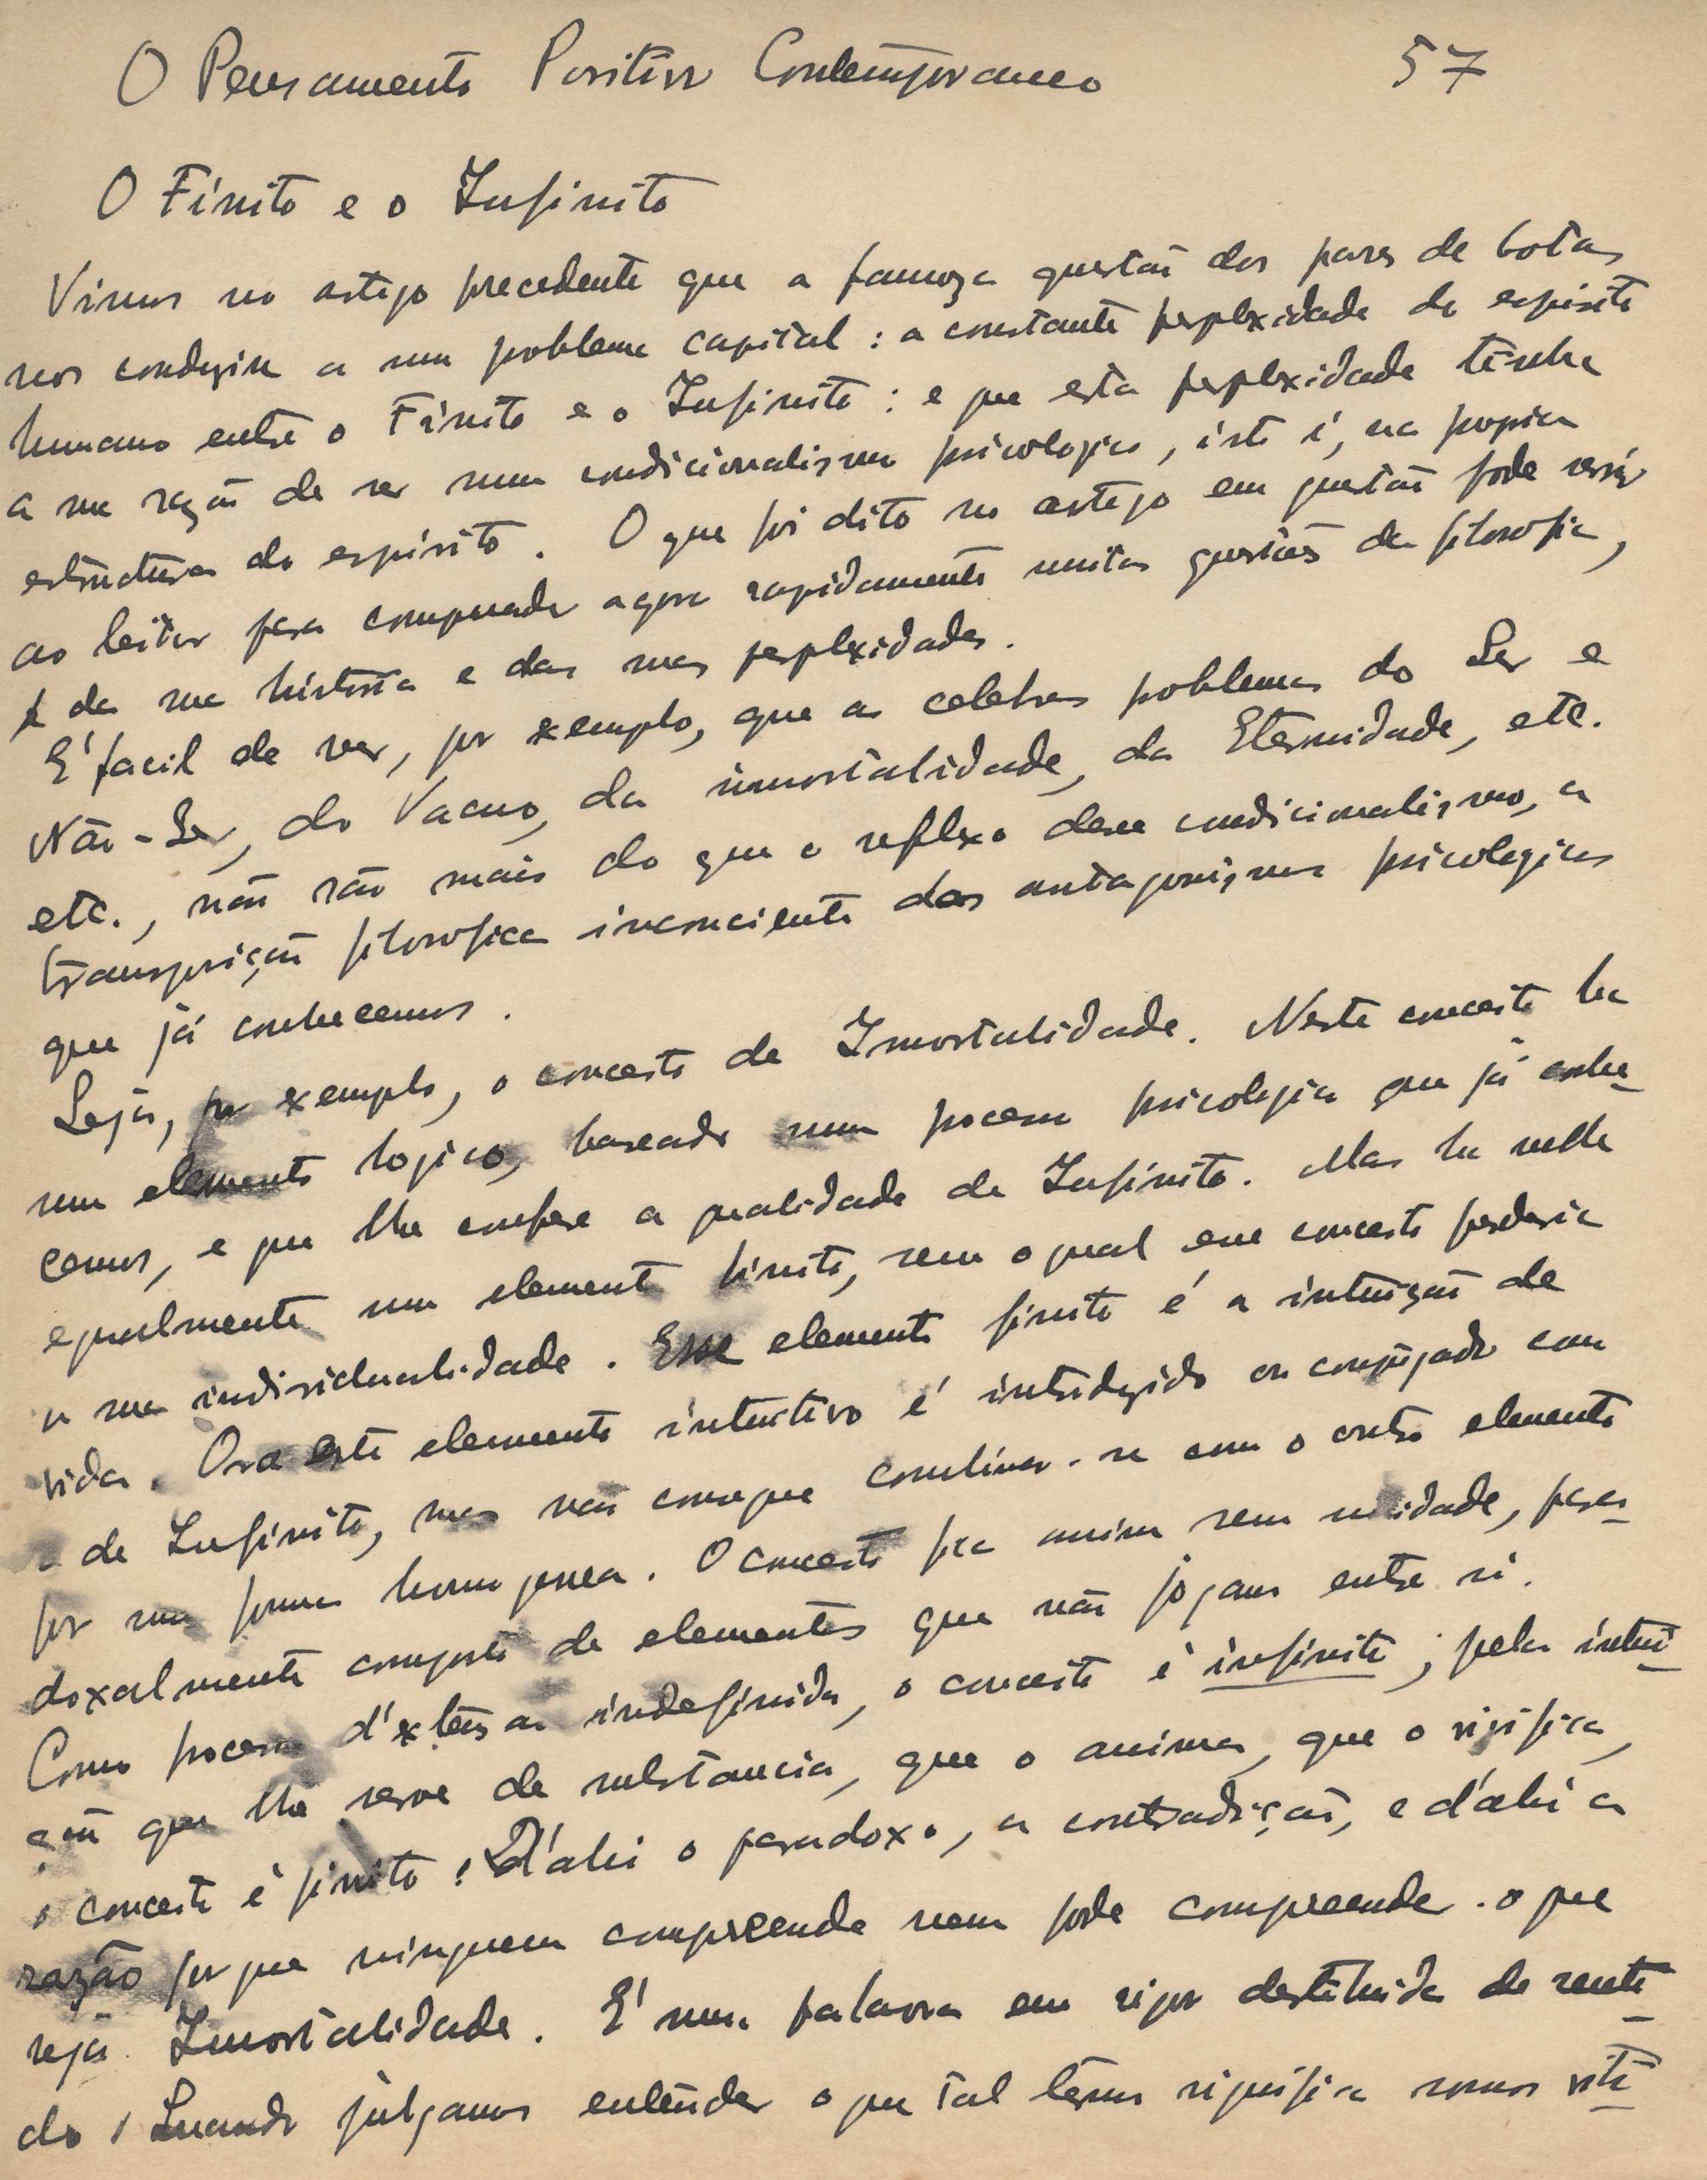 O Pensamento Positivo Contemporaneo 57
O Finito e o Infinito
Vimos no artigo precedente que a famoza questão dos pares de botas
nos conduzira a um problema capital : a constante perplexidade do espirito
humano entre o Finito e o Infinito : e que esta perplexidade tinha
a sua razão de ser num condicionalismo psicologico, isto é, na propria
estructura do espirito. O que foi dito no artigo em questão pode servir
ao leitor para compreender agora rapidamente muitas questões da filosofia,
da sua historia e das suas perplexidades.
É facil de ver, por exemplo, que os celebres problemas do Ser e
Não-Ser, do Vacuo, da imortalidade, da Eternidade, etc.
etc., não são mais do que o reflexo desse condicionalismo, a
transposição filosofica inconciente dos antagonismos psicologicos
que já conhecemos.
Seja, por exemplo, o conceito de Imortalidade. Neste conceito ha
um elemento logico, baseado num processo psicologico que já conhe-
cemos, e que lhe confere a qualidade de Infinito. Mas ha nelle
egualmente um elemento finito, sem o qual esse conceito perderia
a sua individualidade. Esse elemento finito é a intuição de
vida. Ora este elemento intuitivo é introduzido ou conjugado com
o de Infinito, mas não consegue combinar-se com o outro elemento
por uma forma homogenea. O conceito fica assim sem unidade, para-
doxalmente composto de elementos que não jogam entre si.
Como processo d'extensão indefinida, o conceito é infinito ; pela intui-
ção que lhe serve de substancia, que o anima, que o vivifica,
o conceito é finito ! D'ahi o paradoxo, a contradição, e d'ahi a
razão por que ninguem compreende nem pode compreender o que
seja Imortalidade. É uma palavra em rigor destituida de senti-
do ! Quando julgamos entender o que tal termo significa somos viti-